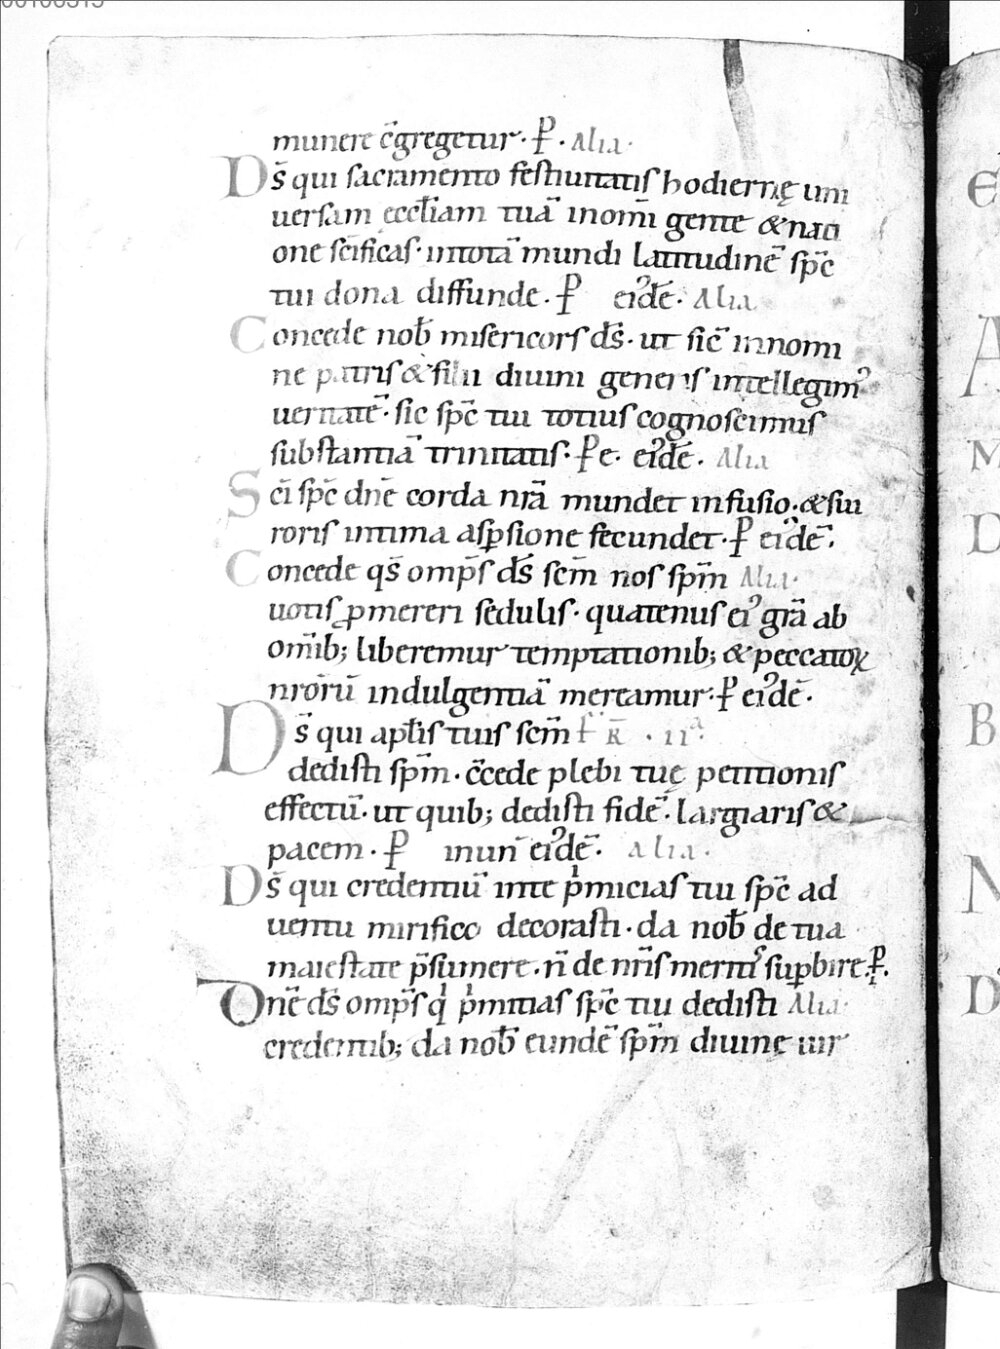 munere c̄gregetur · P̄ · Alia ·
Ds̄ qui sacramento festiuitatis hodiernę uni
uersam ecctiam tuā inom̄i gente & nati
one sc̄ificas · intotā mundi latitudinē sp̄c
tui dona diffunde · P̄ eiꝰdē · Alia
Concede nob̄ misericors ds̄ · ut sic̄ innomi
ne patris & filii diuini generis intellegimꝰ
ueritatē · sic sp̄c tui totius cognoscimus
substantiā trinitatis · P̄e · eiꝰdē · Alia
Sc̄i sp̄c dn̄e corda nr̄a mundet infusio · & sui
roris intima asꝑsione fecundet · P̄ eiꝰdē ·
Concede qs̄ omp̄s ds̄ sc̄m nos sp̄m Alia ·
uotis ꝓmereri sedulis · quatenus eiꝰ gr̄a ab
om̄ib; liberemur temptationib; & peccatoꝝ
nrōrū indulgentiā mereamur · P̄ eiꝰdē ·
Ds̄ qui aptis tuis sc̄m F̄ R̄ · IIª ·
dedisti sp̄m · c̄cede plebi tuę petitionis
effectū · ut quib; dedisti fidē · largiaris &
pacem · P̄ inun̄ eiꝰdē · Alia ·
Ds̄ qui credentiū inte pͥmicias tui sp̄c ad
uentu mirifico decorasti · da nob̄ de tua
maiestate p̄sumere · n̄ de nr̄is meritis suꝑbire · P̄ ·
Dn̄e ds̄ omp̄s qͥ pͥmitias sp̄c tui dedisti Alia ·
credentib; da nob̄ eundē sp̄m diuinę uir